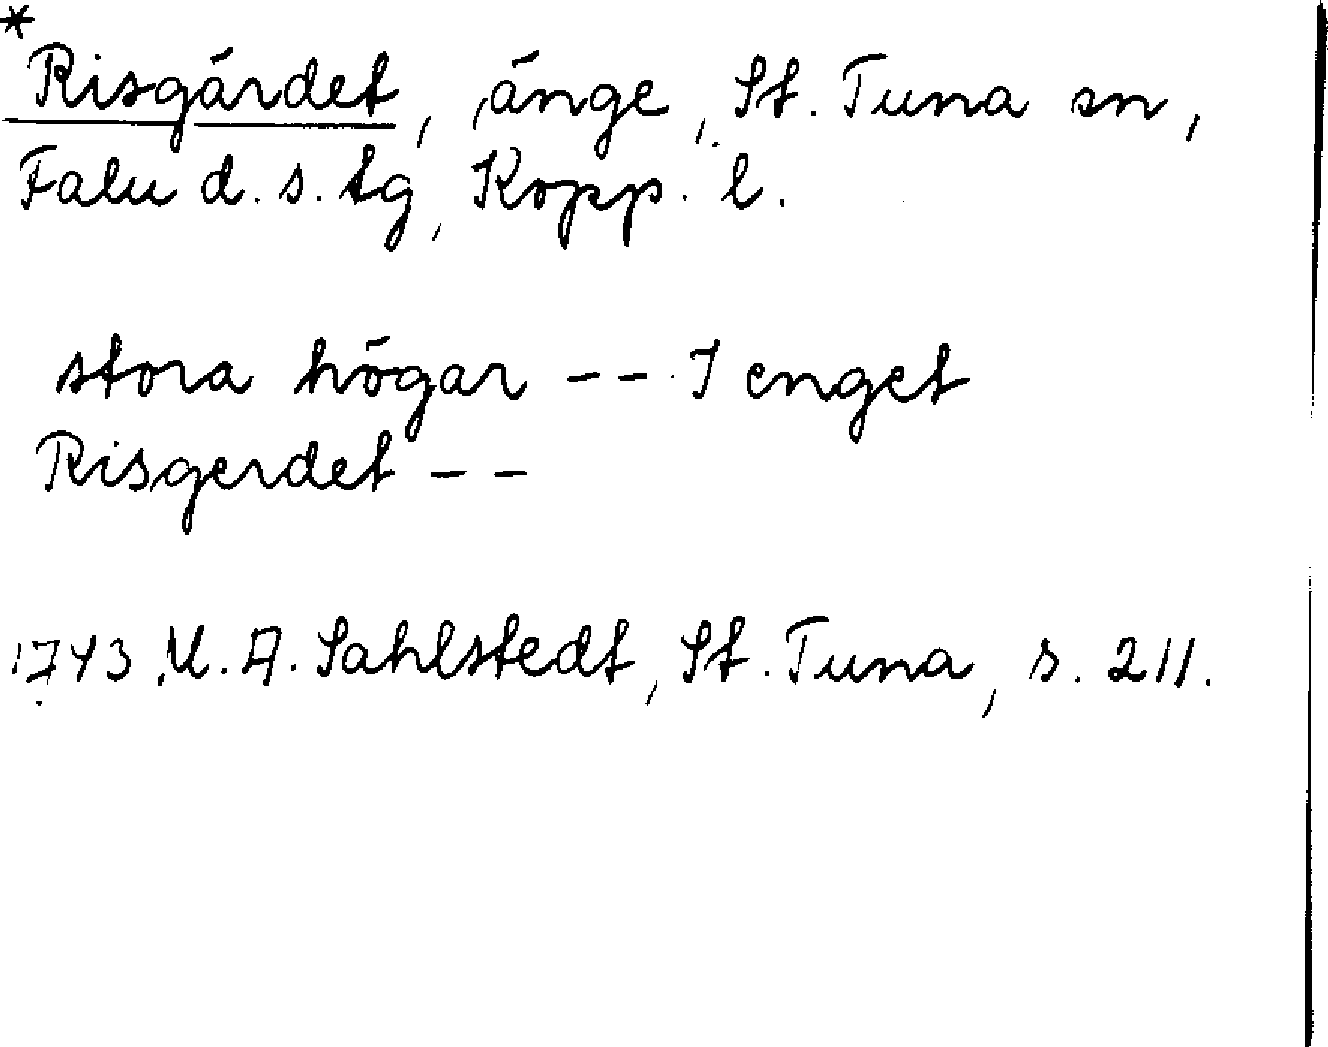 *
Risgärdet, änge, St. Tuna sn,
Falu d. s. tg, Kopp. l.
stora högar -- I enget
Risgerdet --
1743, U. A. Sahlstedt, St. Tuna, s. 211.